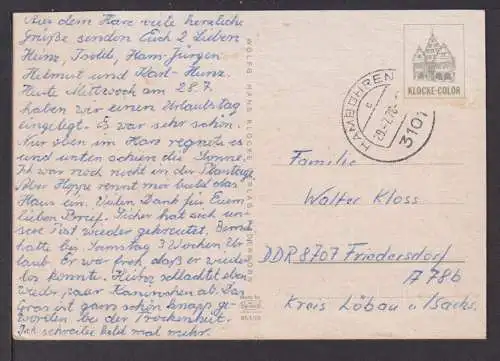 Aus dem Harz viele herzliche
Grüße senden Euch 2 Lieben
Heinz, Isolde, Hans-Jürgen
Helmut und Karl-Heinz.
Heute Mittwoch am 28.7.
haben wir einen Urlaubstag
eingelegt. Es war sehr schön.
Nur oben im Harz regnete es
und unten schien die Sonne.
Ich war noch nicht in der Plantage
Aber Hoppe rennt mir bald das
Haus ein. Vielen Dank für Euern
lieben Brief. Sicher hat sich un-
sere Tat wieder gefreutet. Bernd
hatte bis Samstag 3 Wochen Ur-
laub. Er war froh, daß er wieder
los konnte. Heinz schlachtet eben
wieder paar Kaninchen ab. Das
Gras ist ganz schön knapp ge-
worden bei der Trockenheit.
Ich schreibe bald mal mehr.
KLOCKE-COLOR
HAMBÜHREN
3101
Familie
Walter Kloss
DDR 8707 Friedersdorf
A 78b
Kreis Löbau i/Sachs.